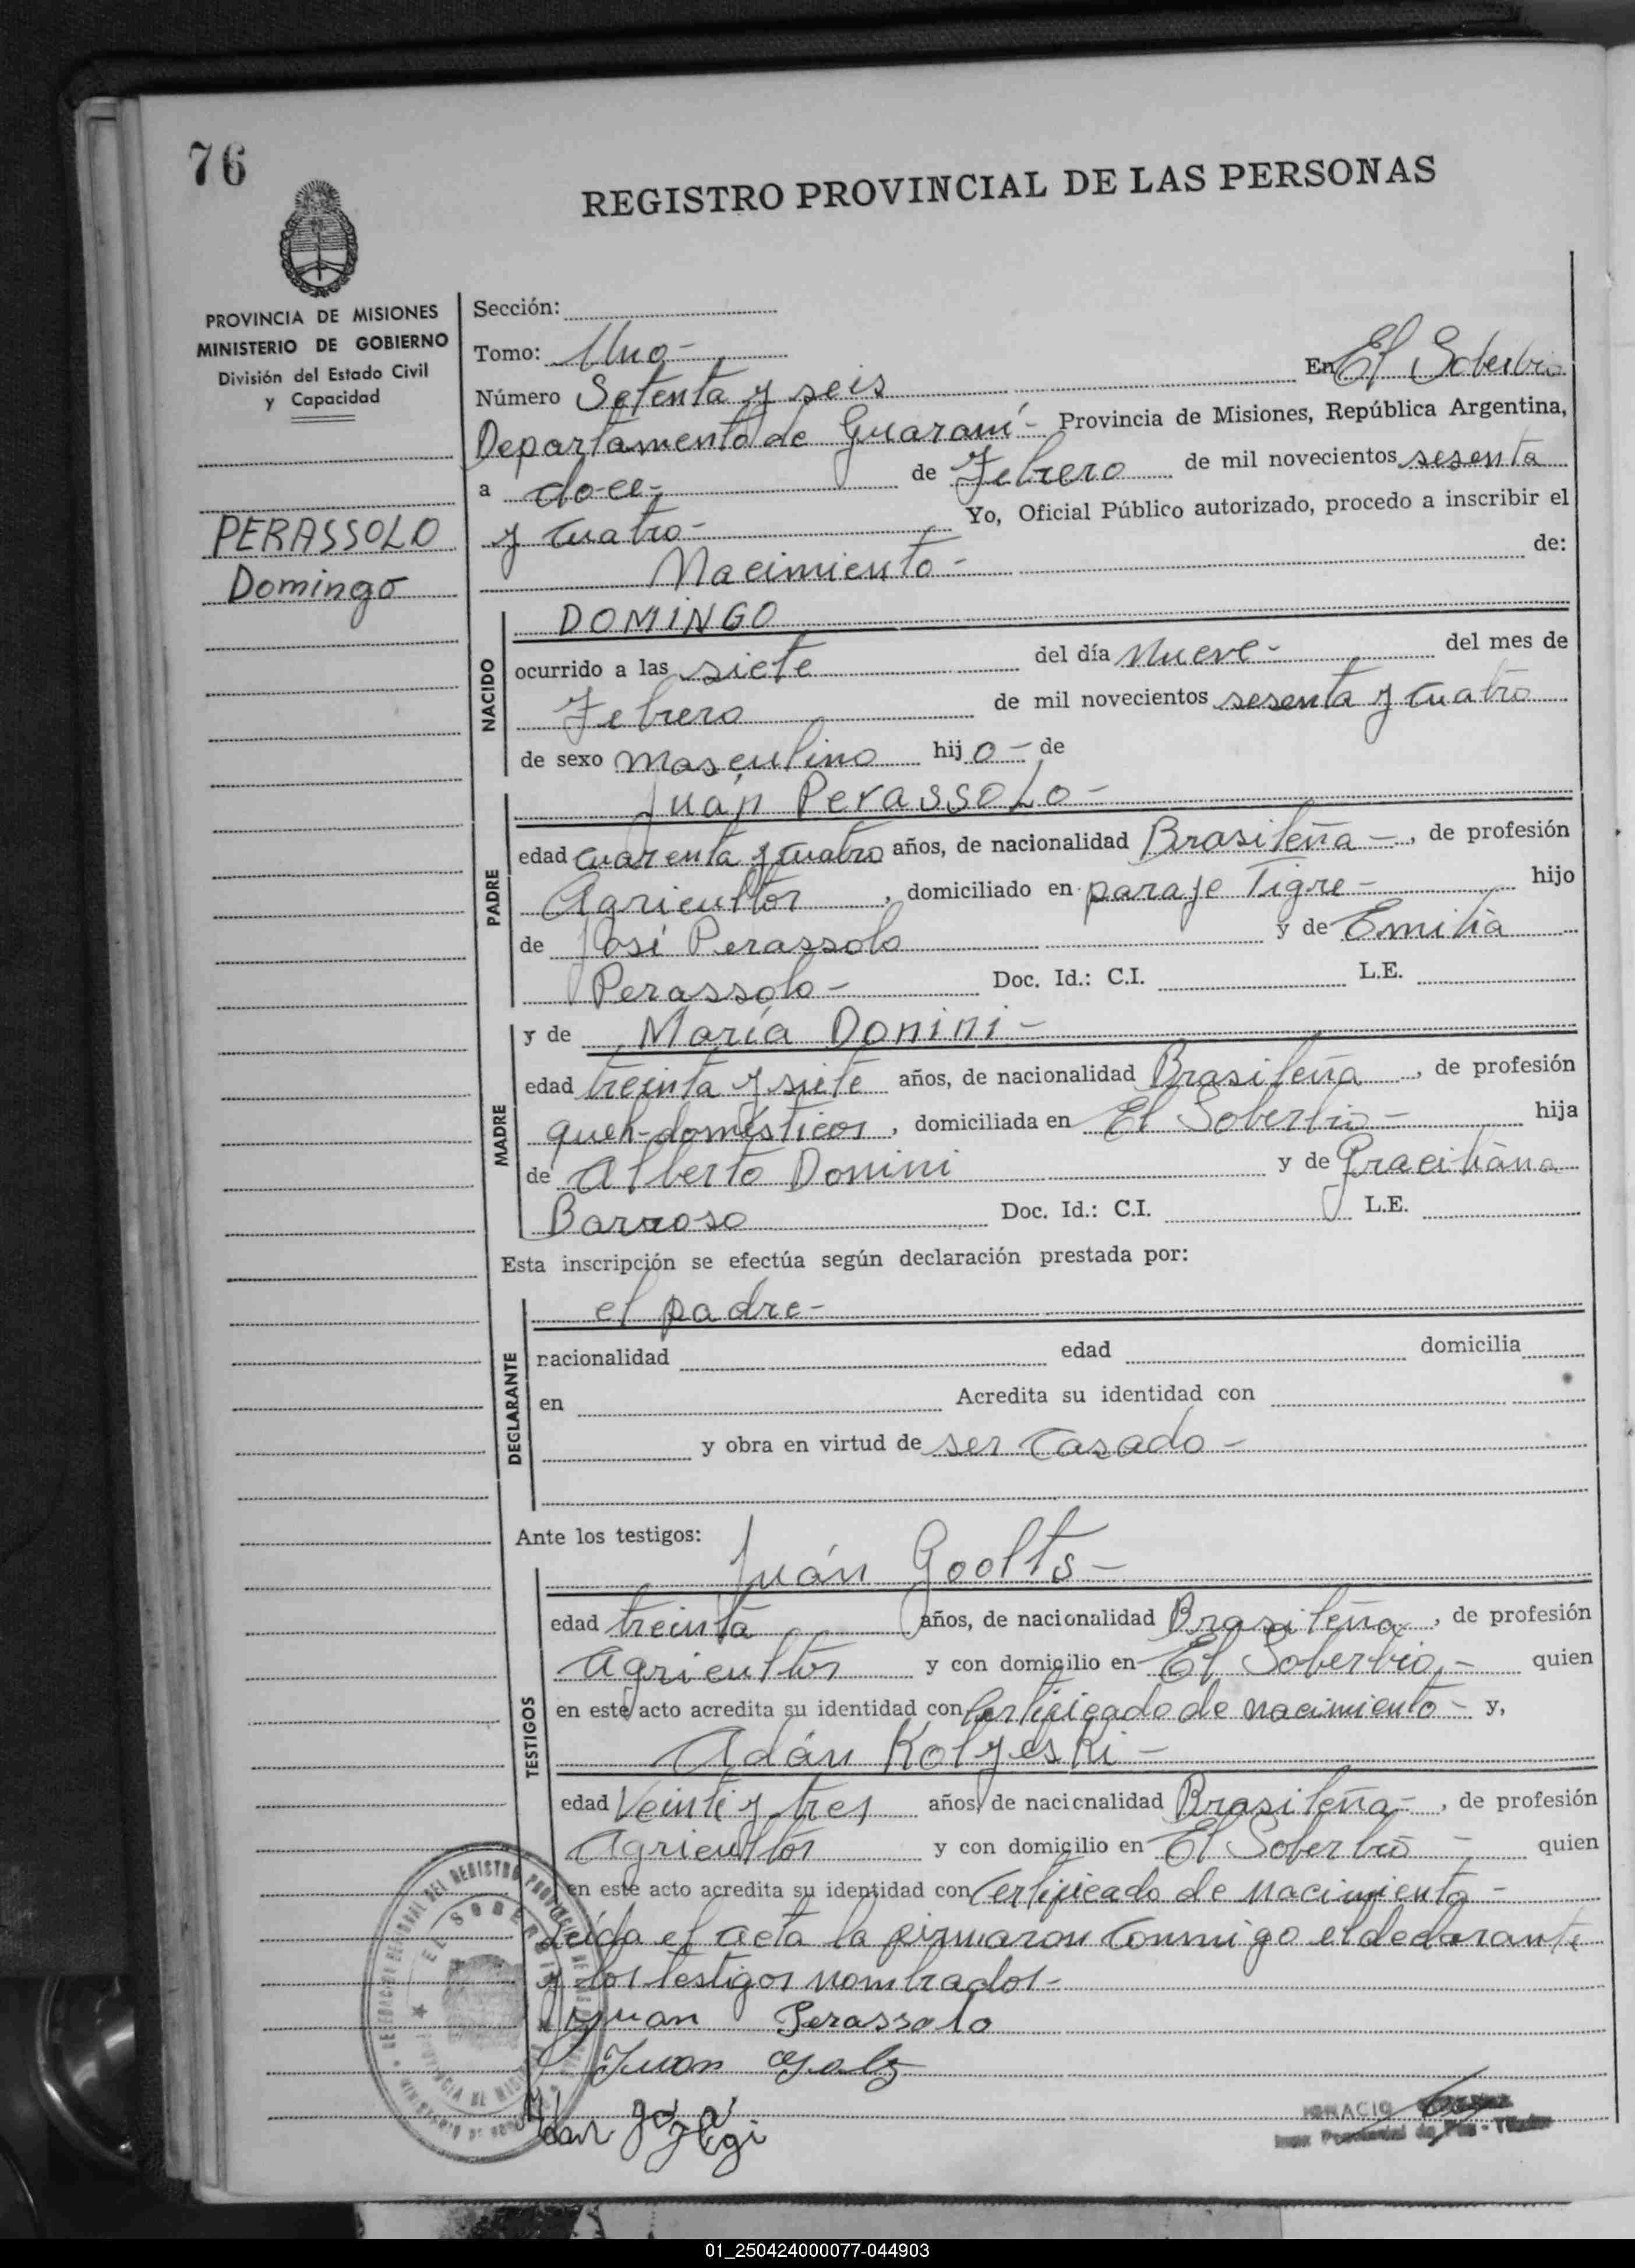 76
REGISTRO PROVINCIAL DE LAS PERSONAS
PROVINCIA DE MISIONES
MINISTERIO DE GOBIERNO
División del Estado Civil
y Capacidad
PERASSOLO
Domingo
Sección:
Tomo: Uno-
Número Setenta y seis En El Soberbio
Departamento de Guaraní- Provincia de Misiones, República Argentina,
a doce, de Febrero de mil novecientos sesenta
y cuatro- Yo, Oficial Público autorizado, procedo a inscribir el
Nacimiento- de:
NACIDO
DOMINGO
ocurrido a las siete del día nueve- del mes de
Febrero de mil novecientos sesenta y cuatro
de sexo masculino hijo- de
PADRE
Juan Perassolo-
edad cuarenta y cuatro años, de nacionalidad Brasileña-, de profesión
Agricultor, domiciliado en paraje Tigre- hijo
de José Perassolo y de Emilia
Perassolo- Doc. Id.: C.I. L.E.
MADRE
y de María Donini-
edad treinta y siete años, de nacionalidad Brasileña, de profesión
queh-domésticos, domiciliada en El Soberbio- hija
de Alberto Donini y de Graciliana
Barroso Doc. Id.: C.I. L.E.
Esta inscripción se efectúa según declaración prestada por:
DECLARANTE
el padre-
nacionalidad edad domicilia
en Acredita su identidad con
y obra en virtud de ser casado-
Ante los testigos:
TESTIGOS
Juán Goolts-
edad treinta años, de nacionalidad Brasileña, de profesión
Agricultor y con domicilio en El Soberbio,- quien
en este acto acredita su identidad con Certificado de nacimiento- y,
Adán Kolyeski-
edad Veinti y tres años, de nacionalidad Brasileña-, de profesión
Agricultor y con domicilio en El Soberbio- quien
en este acto acredita su identidad con Certificado de nacimiento-
Leída el acta la firmaron conmigo el declarante
y los testigos nombrados-
Juan Perassolo
Juan
EL SOBERBIO
IGNACIO
01_250424000077-044903